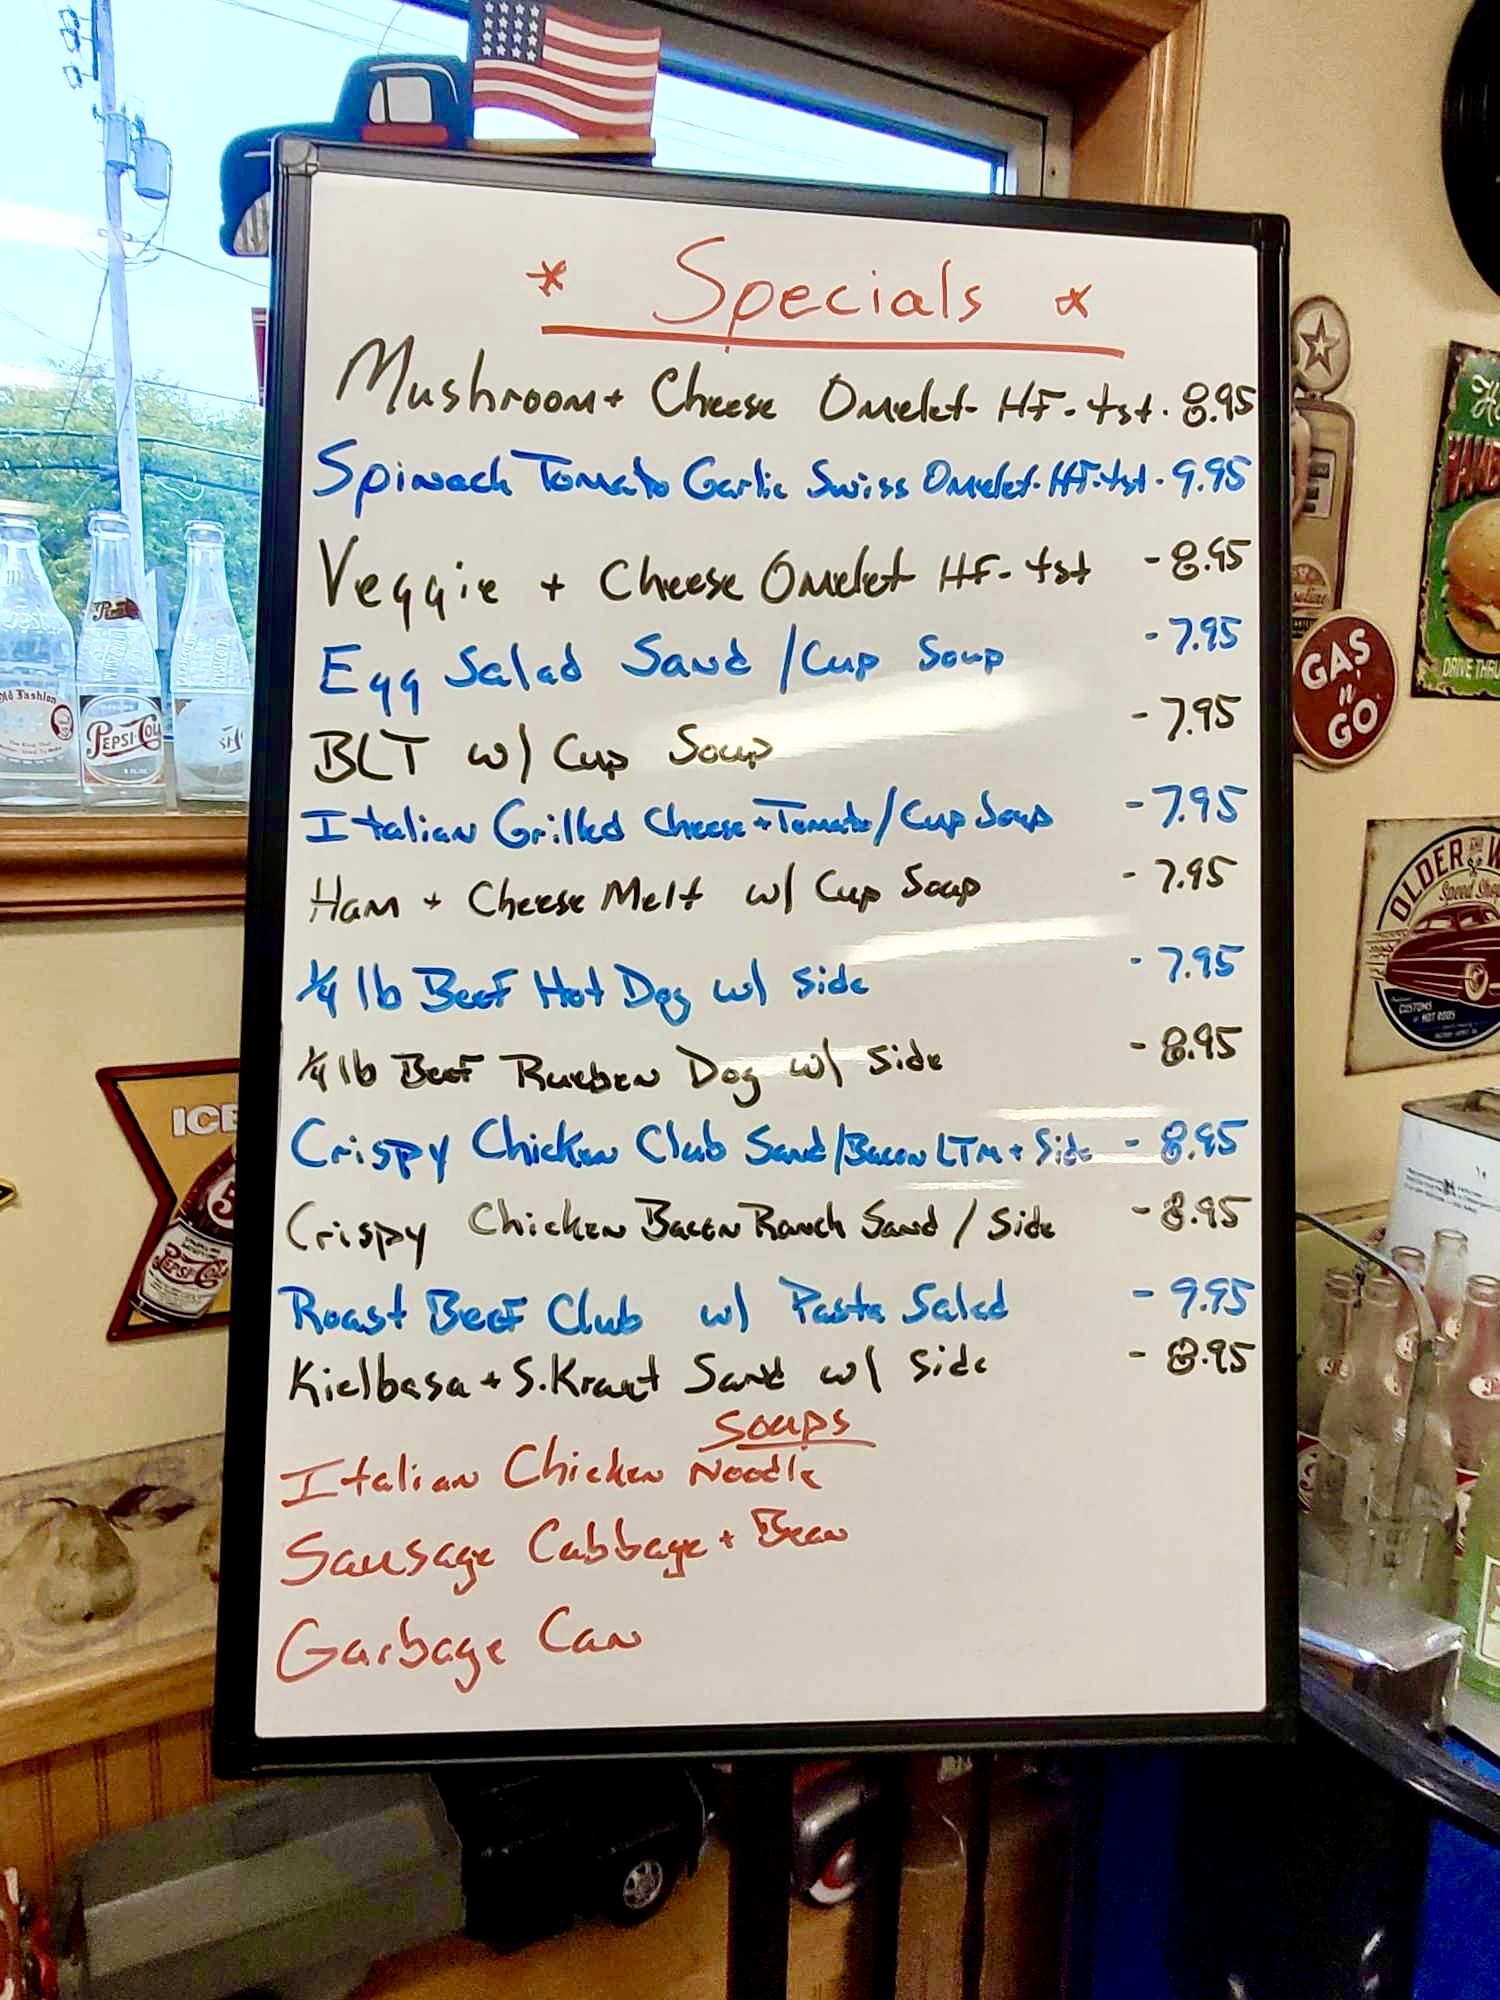 * Specials *
Mushroom + Cheese Omelet HF - tst - 8.95
Spinach Tomato Garlic Swiss Omelet - HF - tst - 9.95
Veggie + Cheese Omelet HF - tst - 8.95
Egg Salad Sand / Cup Soup - 7.95
BLT w/ Cup Soup - 7.95
Italian Grilled Cheese + Tomato / Cup Soup - 7.95
Ham + Cheese Melt w/ Cup Soup - 7.95
1/4 lb Beef Hot Dog w/ Side - 7.95
1/4 lb Beef Rueben Dog w/ Side - 8.95
Crispy Chicken Club Sand / Bacon LTM + Side - 8.95
Crispy Chicken Bacon Ranch Sand / Side - 8.95
Roast Beef Club w/ Pasta Salad - 9.95
Kielbasa + S.Kraut Sand w/ Side - 8.95
Soups
Italian Chicken Noodle
Sausage Cabbage + Bean
Garbage Can
Old Fashion
PEPSI-COLA
ICE
5
PEPSI-COLA
GAS
'n'
GO
DRIVE THRU
OLDER AND W
Speed Shop
CUSTOMS
HOT RODS